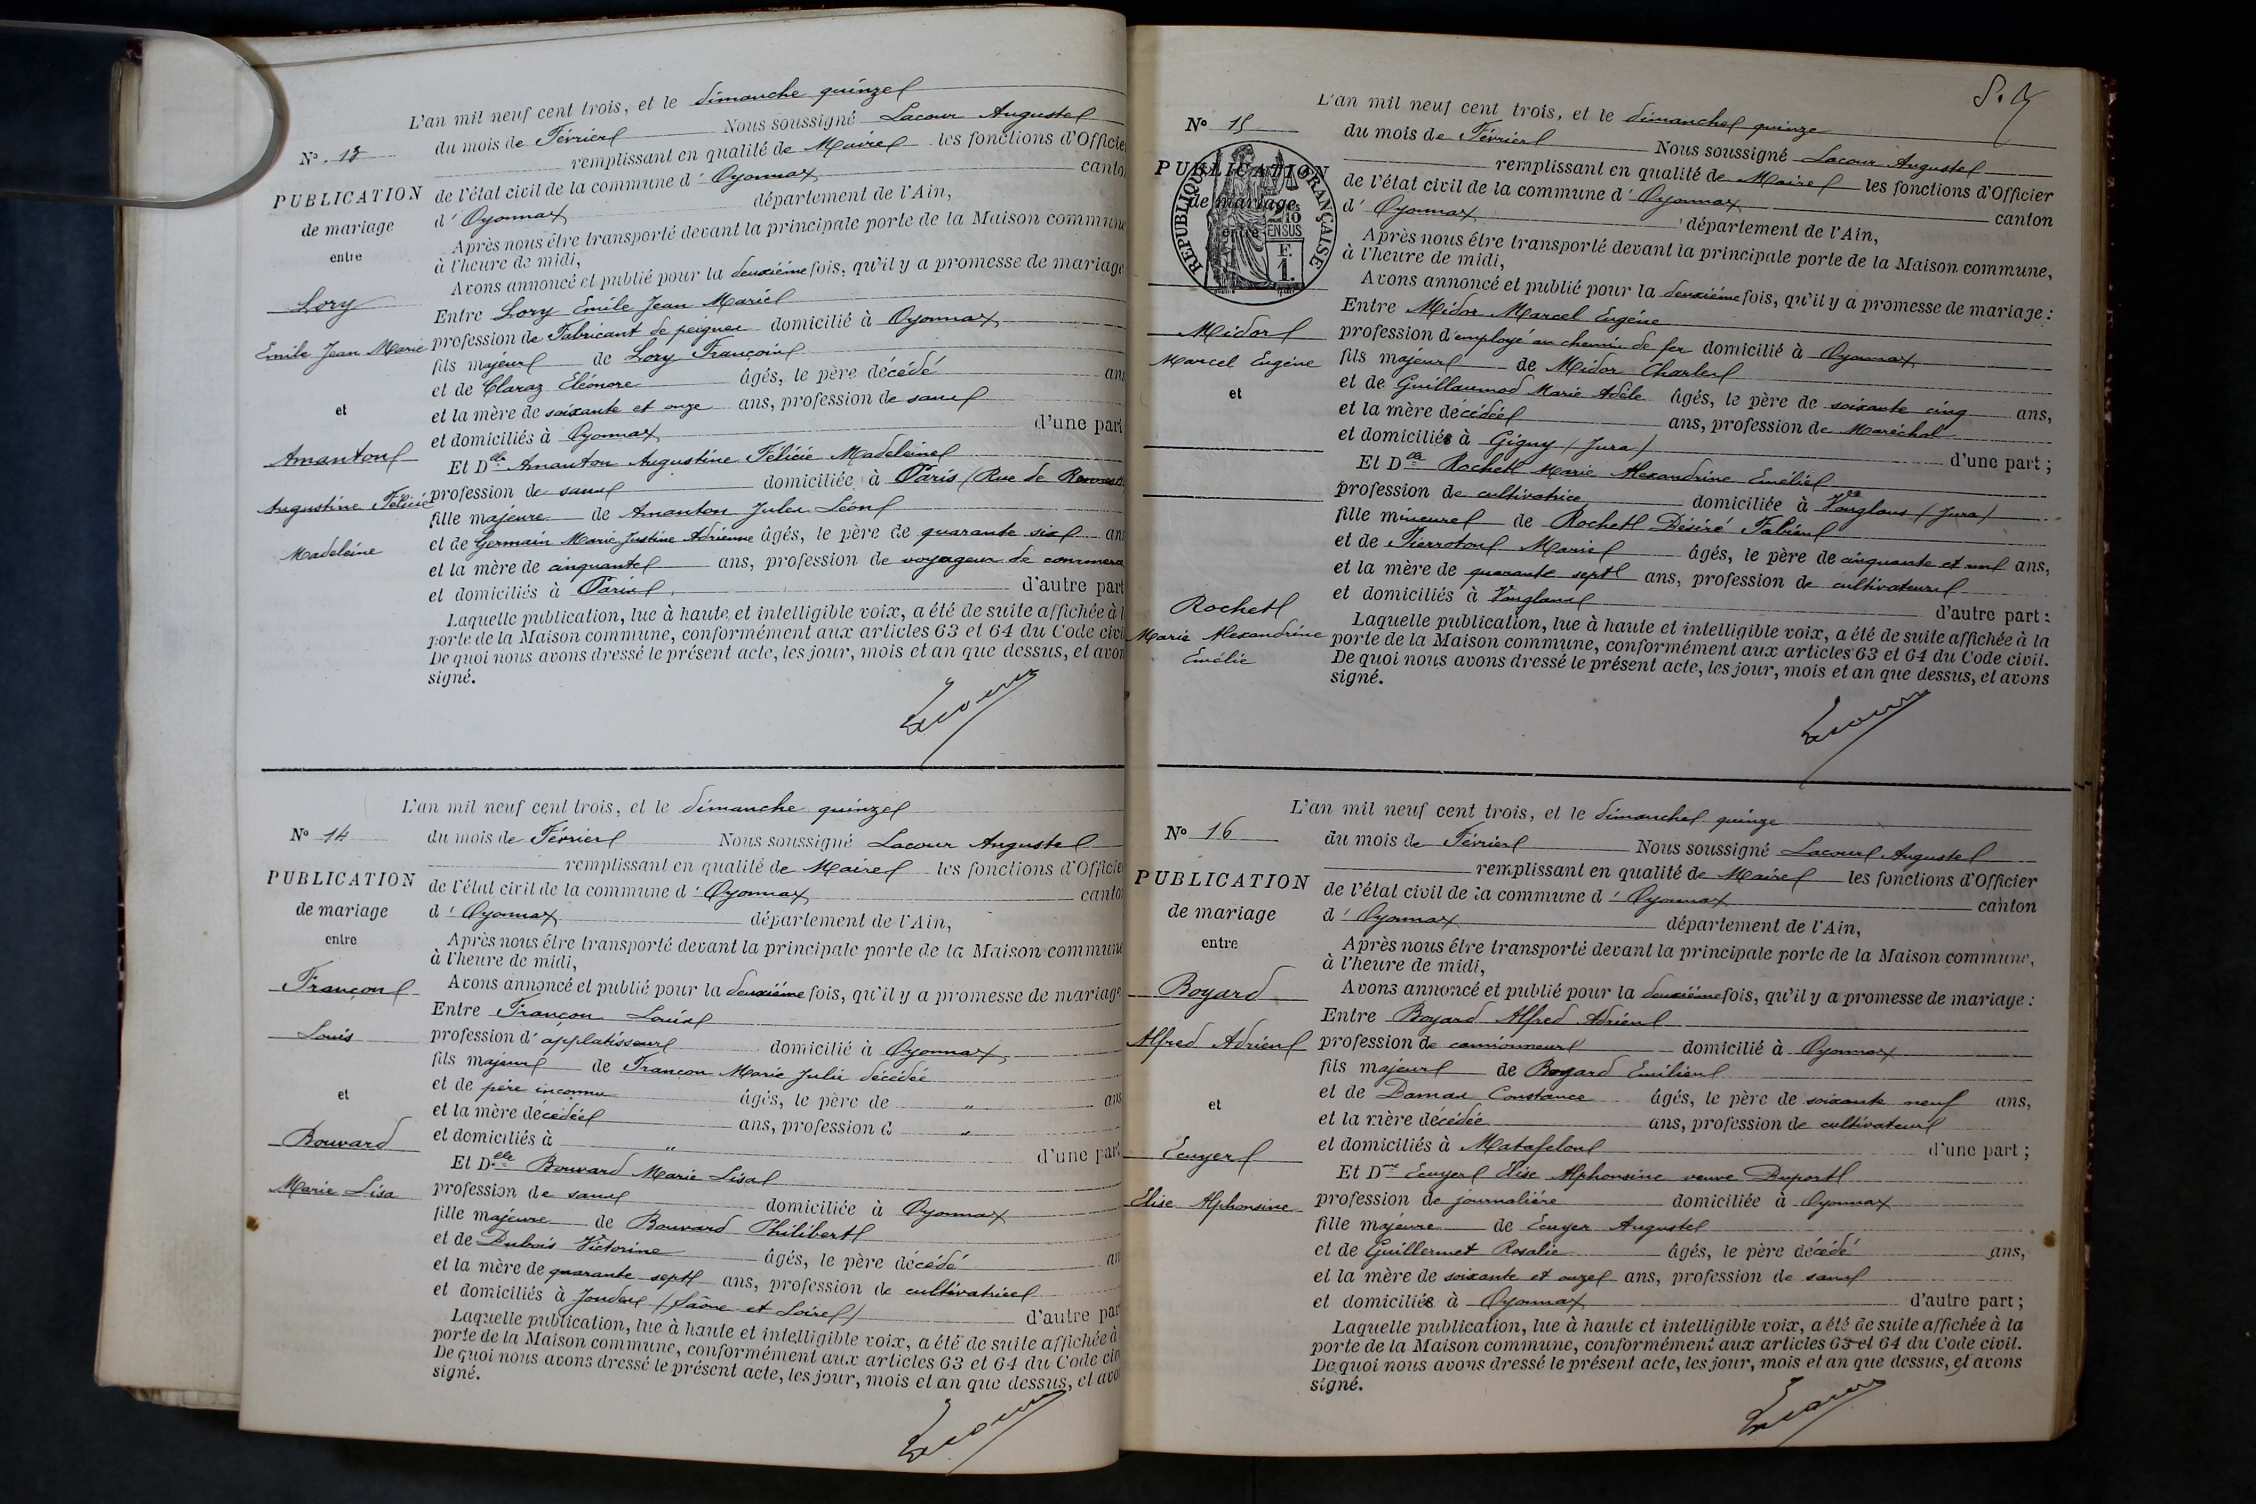 L'an mil neuf cent trois, et le dimanche quinze
N° 13
du mois de Février Nous soussigné Lacour Auguste
remplissant en qualité de Maire les fonctions d'Officie
PUBLICATION
de l'état civil de la commune d' Oyonnax canto
de mariage
d' Oyonnax département de l'Ain,
entre
Après nous être transporté devant la principale porte de la Maison commune
à l'heure de midi,
Avons annoncé et publié pour la deuxième fois, qu'il y a promesse de mariage
Lory
Entre Lory Emile Jean Marie
Emile Jean Marie
profession de Fabricant de peignes domicilié à Oyonnax
fils majeur de Lory François
et de Claraz Eléonore âgés, le père décédé ans
et
et la mère de soixante et onze ans, profession de sans
et domiciliés à Oyonnax d'une part
Amanton
Et Dlle Amanton Augustine Félicie Madeleine
profession de sans domiciliée à Paris (Rue de
Augustine Félicie
fille majeure de Amanton Jules Léon
Madeleine
et de Germain Marie Justine Adrienne âgés, le père de quarante six ans
et la mère de cinquante ans, profession de voyageur de commerce
et domiciliés à Paris d'autre part
Laquelle publication, lue à haute et intelligible voix, a été de suite affichée à l
porte de la Maison commune, conformément aux articles 63 et 64 du Code civil
De quoi nous avons dressé le présent acte, les jour, mois et an que dessus, et avon
signé.
Lacour
L'an mil neuf cent trois, et le dimanche quinze
N° 14
du mois de Février Nous soussigné Lacour Auguste
remplissant en qualité de Maire les fonctions d'Officie
PUBLICATION
de l'état civil de la commune d' Oyonnax canton
de mariage
d' Oyonnax département de l'Ain,
entre
Après nous être transporté devant la principale porte de la Maison commune
à l'heure de midi,
Françon
Avons annoncé et publié pour la deuxième fois, qu'il y a promesse de mariage
Entre Françon Louis
Louis
profession d' applatisseur domicilié à Oyonnax,
fils majeur de Francon Marie Julie décédée
et
et de père inconnu âgés, le père de " ans
et la mère décédée ans, profession d "
et domiciliés à " d'une part
Bouvard
Et Dlle Bouvard Marie Lisa
Marie Lisa
profession de sans domiciliée à Oyonnax
fille majeure de Bouvard Philibert
et de Dubois Victorine âgés, le père décédé an
et la mère de quarante sept ans, profession de cultivatrice
et domiciliés à Joudes (Saône et Loire) d'autre par
Laquelle publication, lue à haute et intelligible voix, a été de suite affichée à
porte de la Maison commune, conformément aux articles 63 et 64 du Code civ
De quoi nous avons dressé le présent acte, les jour, mois et an que dessus, et avo
signé.
Lacour
L'an mil neuf cent trois, et le dimanche quinze
N° 15
du mois de Février Nous soussigné Lacour Auguste
remplissant en qualité de Maire les fonctions d'Officier
PUBLICATION
de l'état civil de la commune d' Oyonnax canton
de mariage
d' Oyonnax département de l'Ain,
entre
RÉPUBLIQUE FRANÇAISE
2/10
EN SUS
F.
1
Après nous être transporté devant la principale porte de la Maison commune,
à l'heure de midi,
Avons annoncé et publié pour la deuxième fois, qu'il y a promesse de mariage :
Midor
Entre Midor Marcel Eugène
Marcel Eugène
profession d'employé au chemin de fer domicilié à Oyonnax
fils majeur de Midor Charles
et
et de Guillaumod Marie Adèle âgés, le père de soixante cinq ans,
et la mère décédée ans, profession de Maréchal
et domiciliés à Gigny (Jura) d'une part ;
Et Dlle Rochet Marie Alexandrine Emélie
profession de cultivatrice domiciliée à Vouglans (Jura)
fille mineure de Rochet Désiré Fabien
et de Pierroton Marie âgés, le père de cinquante et un ans,
et la mère de quarante sept ans, profession de cultivateurs
et domiciliés à Vouglans d'autre part :
Rochet
Marie Alexandrine
Emélie
Laquelle publication, lue à haute et intelligible voix, a été de suite affichée à la
porte de la Maison commune, conformément aux articles 63 et 64 du Code civil.
De quoi nous avons dressé le présent acte, les jour, mois et an que dessus, et avons
signé.
Lacour
L'an mil neuf cent trois, et le dimanche quinze
N° 16
du mois de Février Nous soussigné Lacour Auguste
remplissant en qualité de Maire les fonctions d'Officier
PUBLICATION
de l'état civil de la commune d' Oyonnax canton
de mariage
d' Oyonnax département de l'Ain,
entre
Après nous être transporté devant la principale porte de la Maison commune,
à l'heure de midi,
Boyard
Avons annoncé et publié pour la deuxième fois, qu'il y a promesse de mariage :
Entre Boyard Alfred Adrien
Alfred Adrien
profession de camionneur domicilié à Oyonnax
fils majeur de Boyard Emilien
et
et de Damas Constance âgés, le père de soixante neuf ans,
et la mère décédée ans, profession de cultivateur
et domiciliés à Matafelon d'une part ;
Ecuyer
Et Dme Ecuyer Elise Alphonsine veuve Duport
Elise Alphonsine
profession de journalière domiciliée à Oyonnax
fille majeure de Ecuyer Auguste
et de Guillermet Rosalie âgés, le père décédé ans,
et la mère de soixante et onze ans, profession de sans
et domiciliés à Oyonnax d'autre part ;
Laquelle publication, lue à haute et intelligible voix, a été de suite affichée à la
porte de la Maison commune, conformément aux articles 63 et 64 du Code civil.
De quoi nous avons dressé le présent acte, les jour, mois et an que dessus, et avons
signé.
Lacour